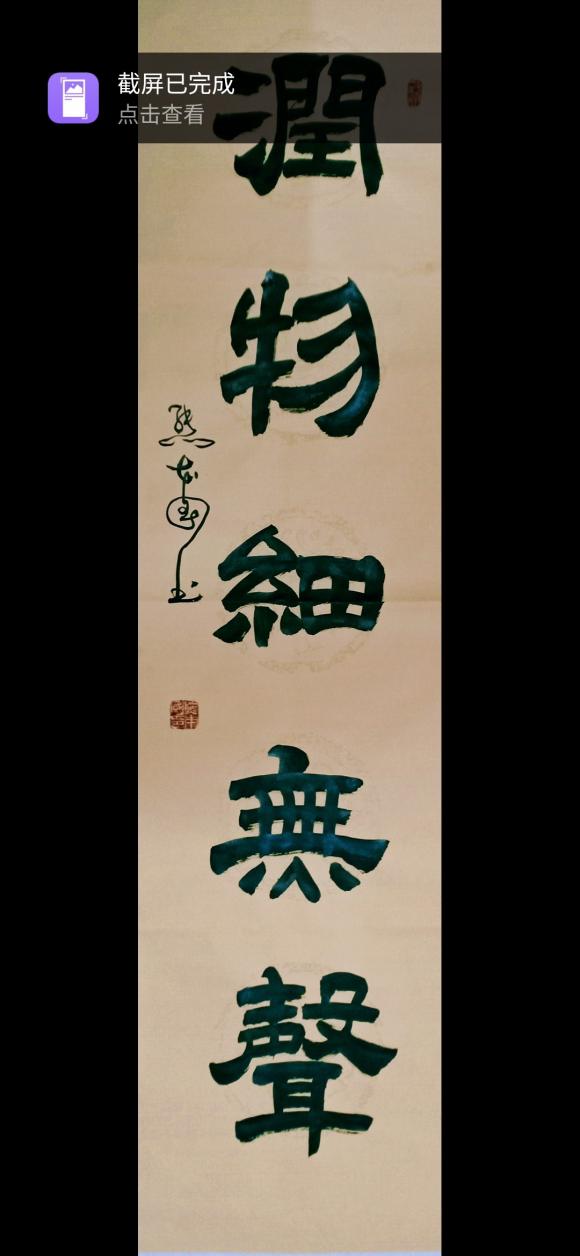 截屏已完成
点击查看
潤物細無聲